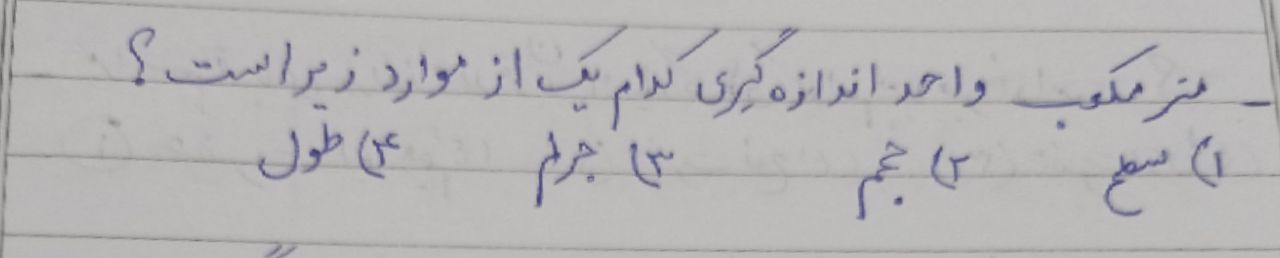 - متر مکعب واحد اندازه گیری کدام یک از موارد زیر است؟
۱) سطح ۲) حجم ۳) جرم ۴) طول